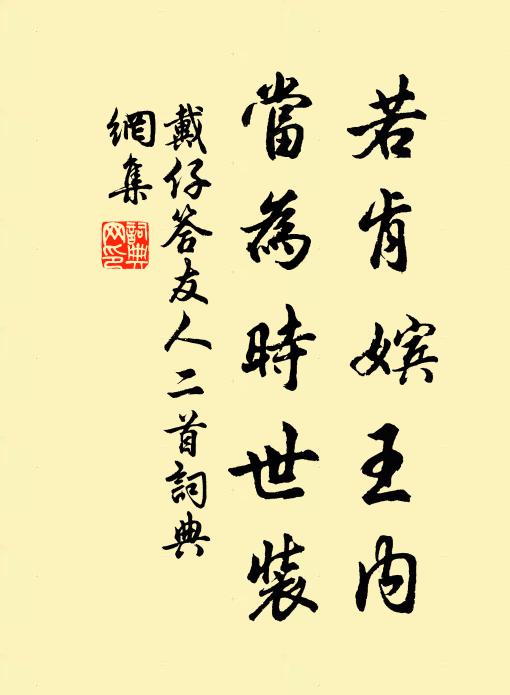 若肯嬪王內
當為時世裝
戴仔答友人二首詞典
網集
詞典
网印